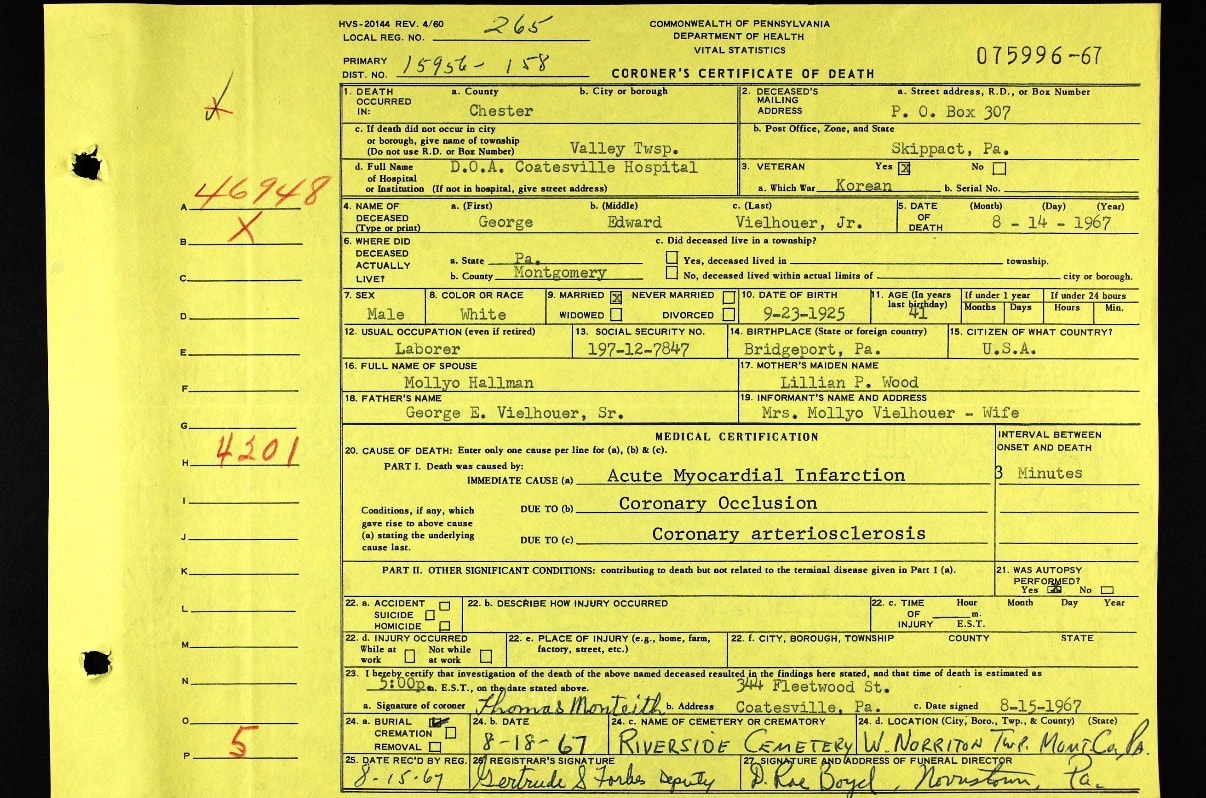 HVS-20144 REV. 4/60
LOCAL REG. NO. 265
COMMONWEALTH OF PENNSYLVANIA
DEPARTMENT OF HEALTH
VITAL STATISTICS
075996-67
PRIMARY
DIST. NO. 15956-158
CORONER'S CERTIFICATE OF DEATH
1. DEATH OCCURRED IN: a. County b. City or borough
Chester
2. DECEASED'S MAILING ADDRESS a. Street address, R.D., or Box Number
P. O. Box 307
c. If death did not occur in city
or borough, give name of township
(Do not use R.D. or Box Number) Valley Twsp.
b. Post Office, Zone, and State
Skippact, Pa.
d. Full Name of Hospital or Institution D.O.A. Coatesville Hospital
(If not in hospital, give street address)
3. VETERAN Yes ☒ No ☐
a. Which War Korean b. Serial No.
A 46948
4. NAME OF DECEASED (Type or print) a. (First) b. (Middle) c. (Last)
George Edward Vielhouer, Jr.
5. DATE OF DEATH (Month) (Day) (Year)
8 - 14 - 1967
B X
6. WHERE DID DECEASED ACTUALLY LIVE?
a. State Pa.
b. County Montgomery
c. Did deceased live in a township?
☐ Yes, deceased lived in township.
☐ No, deceased lived within actual limits of city or borough.
C
7. SEX Male
8. COLOR OR RACE White
9. MARRIED ☒ NEVER MARRIED ☐
WIDOWED ☐ DIVORCED ☐
10. DATE OF BIRTH 9-23-1925
11. AGE (In years last birthday) 41
If under 1 year Months Days
If under 24 hours Hours Min.
D
12. USUAL OCCUPATION (even if retired) Laborer
13. SOCIAL SECURITY NO. 197-12-7847
14. BIRTHPLACE (State or foreign country) Bridgeport, Pa.
15. CITIZEN OF WHAT COUNTRY? U.S.A.
E
16. FULL NAME OF SPOUSE
Mollyo Hallman
17. MOTHER'S MAIDEN NAME
Lillian P. Wood
F
18. FATHER'S NAME
George E. Vielhouer, Sr.
19. INFORMANT'S NAME AND ADDRESS
Mrs. Mollyo Vielhouer - Wife
G
MEDICAL CERTIFICATION
INTERVAL BETWEEN
ONSET AND DEATH
H 4201
20. CAUSE OF DEATH: Enter only one cause per line for (a), (b) & (c).
PART I. Death was caused by:
IMMEDIATE CAUSE (a) Acute Myocardial Infarction
3 Minutes
I
Conditions, if any, which
gave rise to above cause
(a) stating the underlying
cause last.
DUE TO (b) Coronary Occlusion
DUE TO (c) Coronary arteriosclerosis
J
K
PART II. OTHER SIGNIFICANT CONDITIONS: contributing to death but not related to the terminal disease given in Part I (a).
21. WAS AUTOPSY
PERFORMED?
Yes ☒ No ☐
L
22. a. ACCIDENT ☐
SUICIDE ☐
HOMICIDE ☐
22. b. DESCRIBE HOW INJURY OCCURRED
22. c. TIME OF INJURY Hour m. E.S.T. Month Day Year
M
22. d. INJURY OCCURRED
While at work ☐ Not while at work ☐
22. e. PLACE OF INJURY (e.g., home, farm,
factory, street, etc.)
22. f. CITY, BOROUGH, TOWNSHIP COUNTY STATE
N
23. I hereby certify that investigation of the death of the above named deceased resulted in the findings here stated, and that time of death is estimated as
5:00p m. E.S.T., on the date stated above.
344 Fleetwood St.
a. Signature of coroner Thomas Monteith b. Address Coatesville, Pa. c. Date signed 8-15-1967
O
24. a. BURIAL ☑
CREMATION ☐
REMOVAL ☐
24. b. DATE
8-18-67
24. c. NAME OF CEMETERY OR CREMATORY
RIVERSIDE CEMETERY
24. d. LOCATION (City, Boro., Twp., & County) (State)
W. NORRITON TWP. MONT Co. PA.
P 5
25. DATE REC'D BY REG.
8-15-67
26. REGISTRAR'S SIGNATURE
Gertrude S Forbes Deputy
27. SIGNATURE AND ADDRESS OF FUNERAL DIRECTOR
D. Rae Boyd, Norristown, Pa.